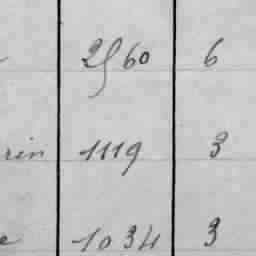 2560 6
rin 1119 3
e 1034 3